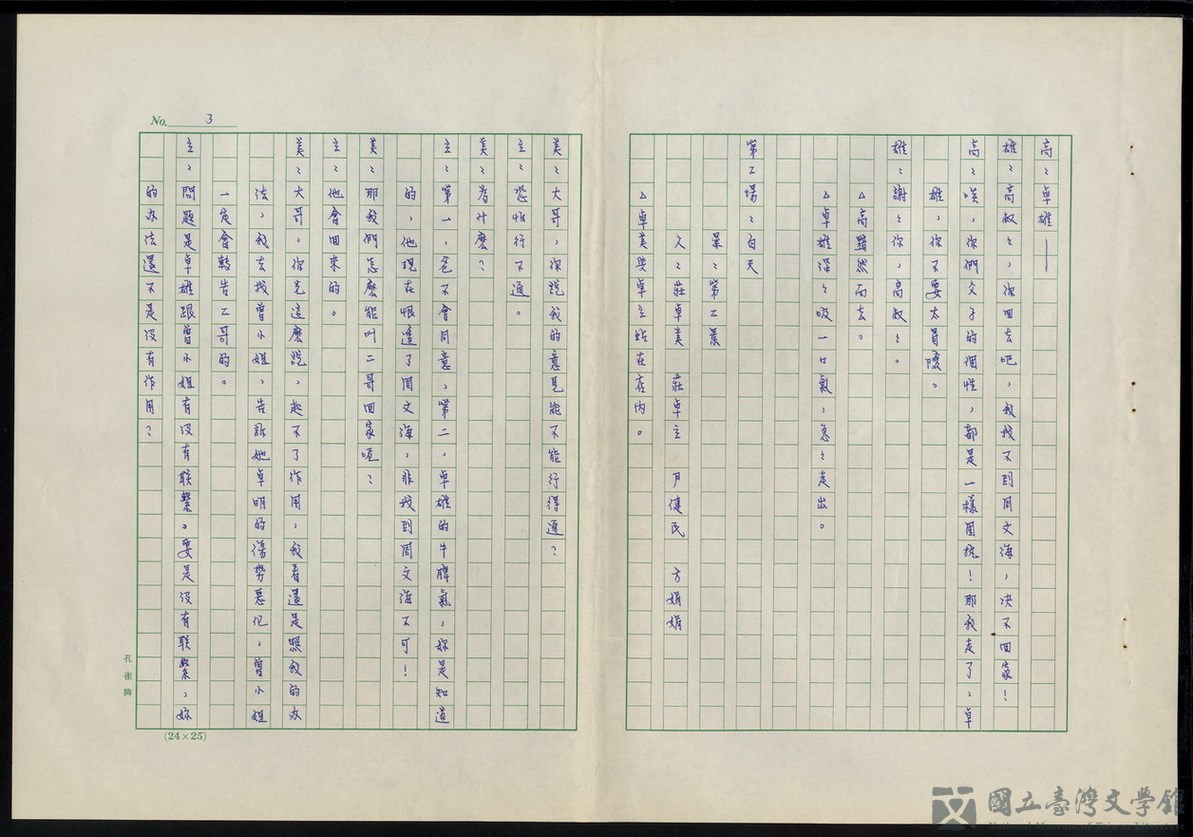 高：卓雄——
雄：高叔叔，你回去吧，我找不到周文海，决不回家！
高：唉，你們父子的個性，都是一樣固执！那我走了，卓
雄，你不要太冒險。
雄：謝謝你，高叔叔。
△高黯然而去。
△卓雄深深吸一口氣，急急走出。
第二場：白天
景：第二景
人：莊卓美 莊卓立 尹健民 方娟娟
△卓美與卓立站在店内。
No. 3
美：大哥，你說我的意見能不能行得通？
立：恐怕行不通。
美：為什麼？
立：第一，爸不會同意，第二，卓雄的牛脾氣，妳是知道
的，他現在恨透了周文海，非找到周文海不可！
美：那我們怎麼能叫二哥回家呢？
立：他會回來的。
美：大哥，你光這麼說，起不了作用，我看還是照我的办
法，我去找曾小姐，告訴她卓明的傷势惡化，曾小姐
一定會轉告二哥的。
立：問題是卓雄跟曾小姐有没有联繫。要是没有联繫，妳
的办法還不是没有作用？
孔雀牌
(24×25)
國立臺灣文學館
National Museum of Taiwan Literature